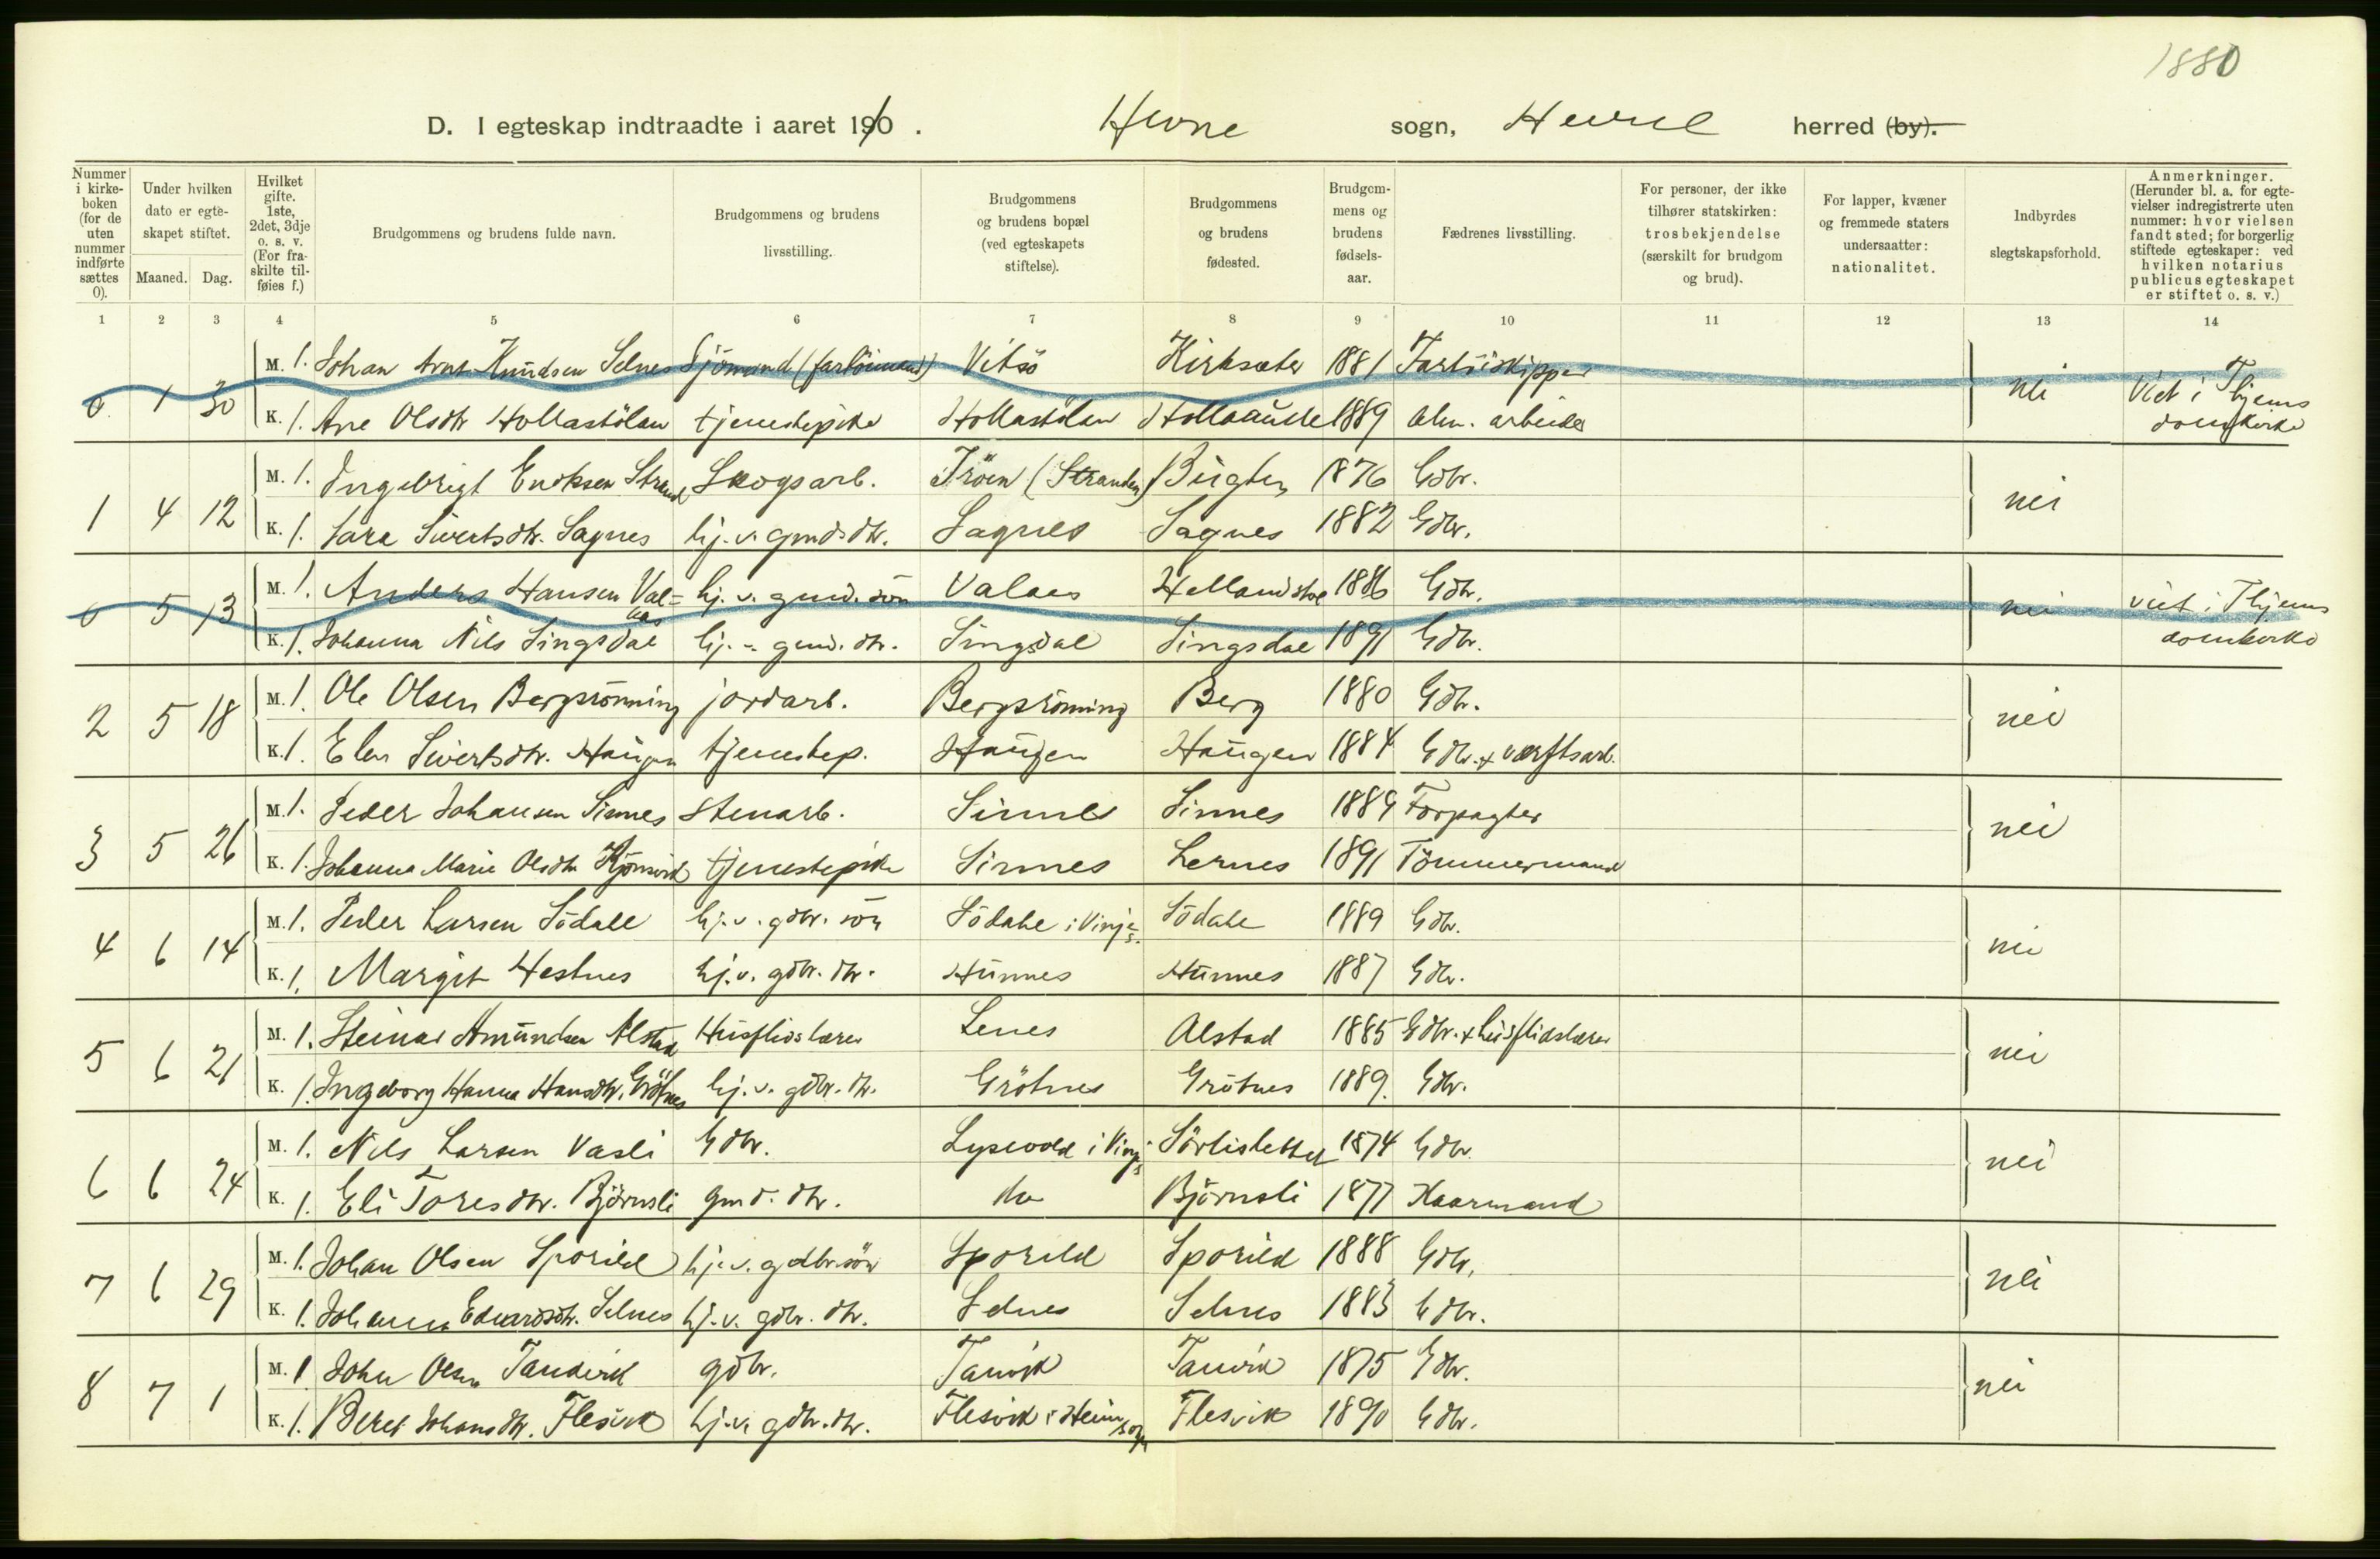 1880
D. I egteskap indtraadte i aaret 1910. Hevne sogn, Hevne herred (by).
Nummer i kirkeboken (for de uten nummer indførte sættes 0).
Under hvilken dato er egteskapet stiftet.
Maaned. Dag.
Hvilket gifte. 1ste, 2det, 3dje o. s. v. (For fraskilte tilføies f.)
Brudgommens og brudens fulde navn.
Brudgommens og brudens livsstilling.
Brudgommens og brudens bopæl (ved egteskapets stiftelse).
Brudgommens og brudens fødested.
Brudgommens og brudens fødselsaar.
Fædrenes livsstilling.
For personer, der ikke tilhører statskirken: trosbekjendelse (særskilt for brudgom og brud).
For lapper, kvæner og fremmede staters undersaatter: nationalitet.
Indbyrdes slegtskapsforhold.
Anmerkninger. (Herunder bl. a. for egtevielser indregistrerte uten nummer: hvor vielsen fandt sted; for borgerlig stiftede egteskaper: ved hvilken notarius publicus egteskapet er stiftet o. s. v.)
1 2 3 4 5 6 7 8 9 10 11 12 13 14
M. 1. Johan Arnt Knudsen Selnes Sjömand (fartöimand) Vitsö Kirksæter 1881 Fartöiskipper
0 1 30 nei Viet i Thjems domkirke
K. 1. Ane Olsdtr Hollastölan tjenestepike Hollastölan Hollaaust 1889 alm. arbeider
M. 1. Ingebrigt Eriksen Strand Skogsarb. Tröen (Stranden) Bugten 1876 Gdbr.
1 4 12 nei
K. 1. Sara Sivertsdtr. Sagnes hj. v. gmds dtr. Sagnes Sagnes 1882 Gdbr.
M. 1. Anders Hansen Valaas hj. v. gmd. sön Valaas Hellandstø 1886 Gdbr.
0 5 13 nei viet i Thjems domkirke
K. 1. Johanna Nils Singsdal hj. - gmd. dtr. Singsdal Singsdal 1891 Gdbr.
M. 1. Ole Olsen Bergsrönning jordarb. Bergsrönning Berg 1880 Gdbr.
2 5 18 nei
K. 1. Elen Sivertsdtr. Haugen tjenestep. Haugen Haugen 1884 Gdbr. + værftsarb.
M. 1. Peder Johansen Sinnes Stenarb. Sinnes Sinnes 1889 Forpagter
3 5 26 nei
K. 1. Johanna Marie Olsdtr Kjönsvik tjenestepike Sinnes Lernes 1891 Tömmermand
M. 1. Peder Larsen Södale hj. v. gdbr. sön Södale i Vinje s. Södale 1889 Gdbr.
4 6 14 nei
K. 1. Margit Hestnes hj. v. gdbr. dtr. Hunnes Hunnes 1887 Gdbr.
M. 1. Steinar Amundsen Alstad Husflidslærer Lenes Alstad 1885 Gdbr. + husflidslærer
5 6 21 nei
K. 1. Ingeborg Hanna Hansdtr. Grötnes hj. v. gdbr. dtr. Grötnes Grötnes 1889. Gdbr.
M. 1. Nils Larsen Vasli Gdbr. Lysvold i Vinje s Sörlisletten 1874 Gdbr.
6 6 24 nei
K. 1. Eli Toresdtr. Björnsli gmd. dtr. do Björnsli 1877 Kaarmand
M. 1. Johan Olsen Sporild hj. v. gdbr. sön Sporild Sporild 1888 Gdbr.
7 6 29 nei
K. 1. Johanna Edvardsdtr. Selnes hj. v. gdbr. dtr. Selnes Selnes 1883 Gdbr.
M. 1 John Olsen Tanvik gdbr. Tanvik Tanvik 1875 Gdbr.
8 7 1 nei
K. 1. Beret Johansdtr. Flesvik hj. v. gdbr. dtr. Flesvik i Heim sogn Flesvik 1890 Gdbr.